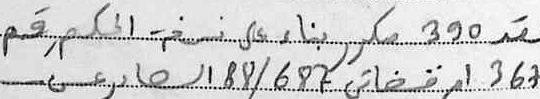 عقد 390 مكرر بناء على نسخة الحكم رقم
367 ام قضائي 88/687 الصادر عن